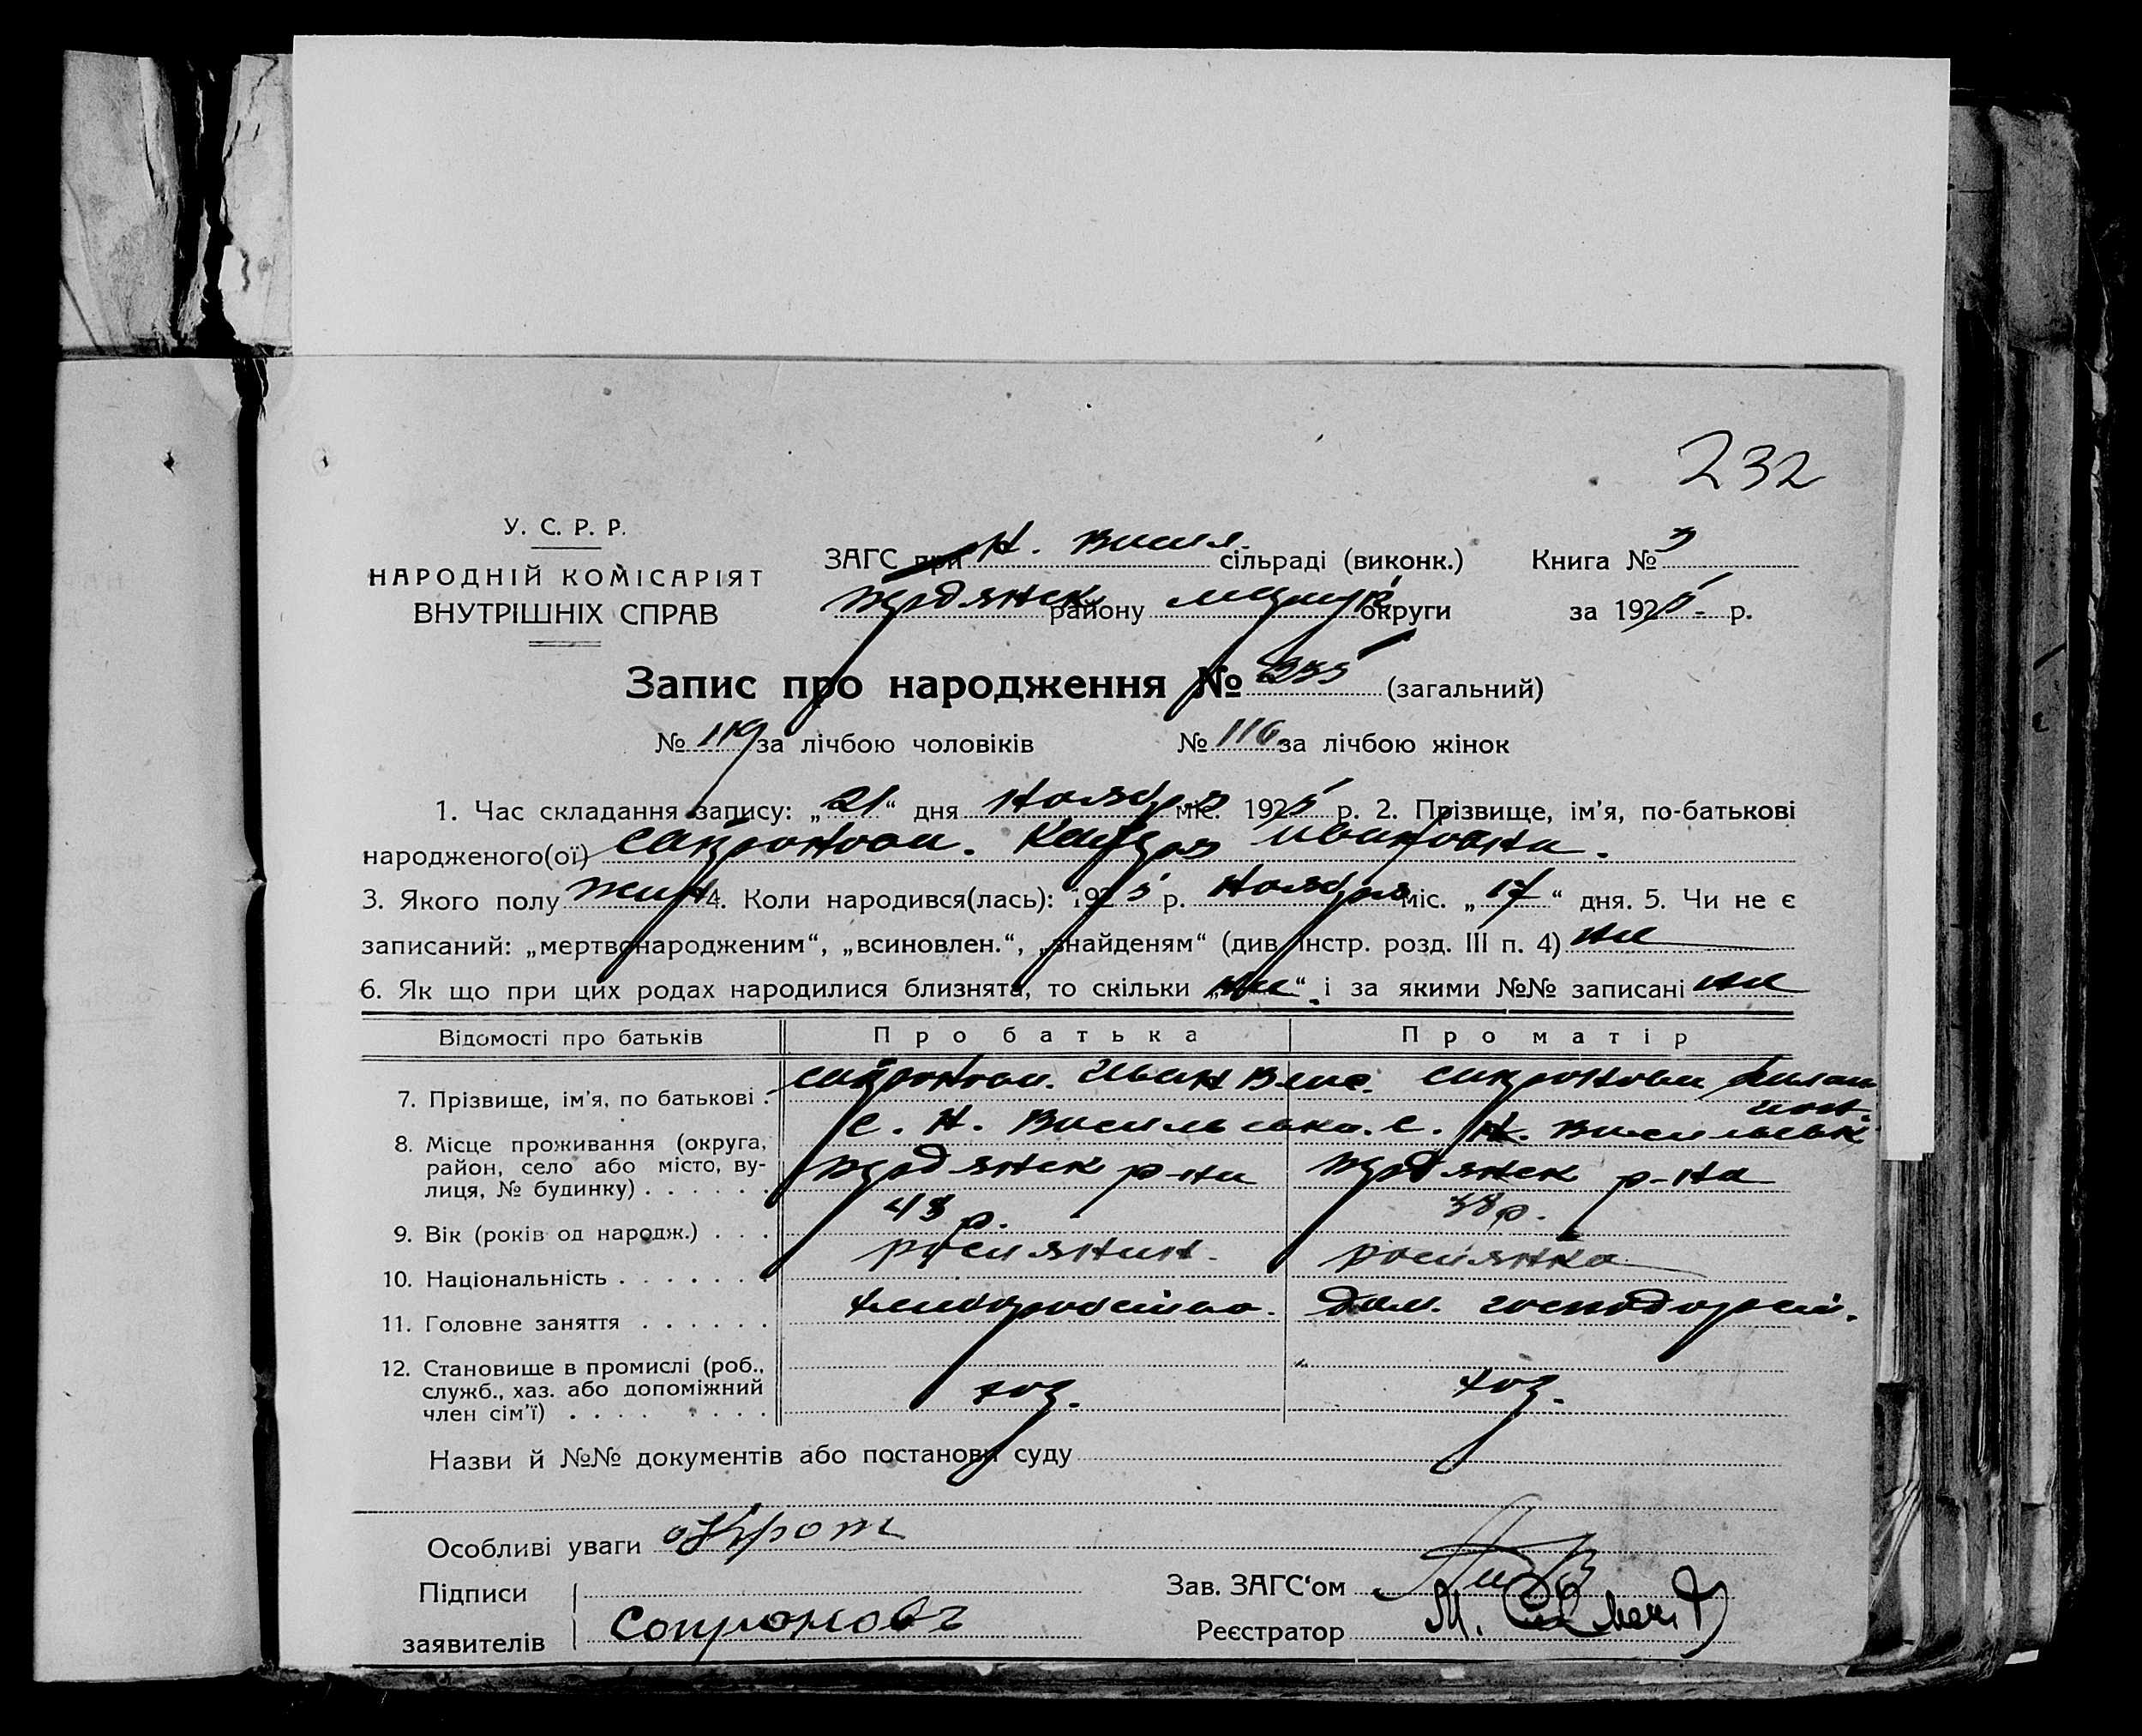 232
У. С. Р. Р.
НАРОДНІЙ КОМІСАРІЯТ
ВНУТРІШНІХ СПРАВ
ЗАГС при Н. Васил. сільраді (виконк.) Книга № 3
району округи за 1925 р.
Запис про народження № 235 (загальний)
№ 119 за лічбою чоловіків № 116 за лічбою жінок
1. Час складання запису: „21“ дня Ноября міс. 1925 р. 2. Прізвище, ім'я, по-батькові
народженого(ої) Сапронова. Ивановна.
3. Якого полу жін 4. Коли народився(лась): 1925 р. Ноября міс. „17“ дня. 5. Чи не є
записаний: „мертвонародженим“, „всиновлен.“, „знайденям“ (див. Інстр. розд. III п. 4) не
6. Як що при цих родах народилися близнята, то скільки „не“ і за якими №№ записані не
Відомості про батьків Про батька Про матір
7. Прізвище, ім'я, по батькові . Иван Сапронова
8. Місце проживання (округа, С. Н. Василівка. С. Н.
район, село або місто, ву- р-на р-на
лиця, № будинку) . . . . . .
9. Вік (років од народж.) . . . 43 р. 38 р.
10. Національність . . . . . . . росиянин. росиянка
11. Головне заняття . . . . . . хліборобство. дом. господарст.
12. Становище в промислі (роб.,
служб., хаз. або допоміжний хоз. хоз.
член сім'ї) . . . . . . . .
Назви й №№ документів або постанови суду
Особливі уваги
Підписи Зав. ЗАГС‘ом
заявителів Сопроновъ Реєстратор М.